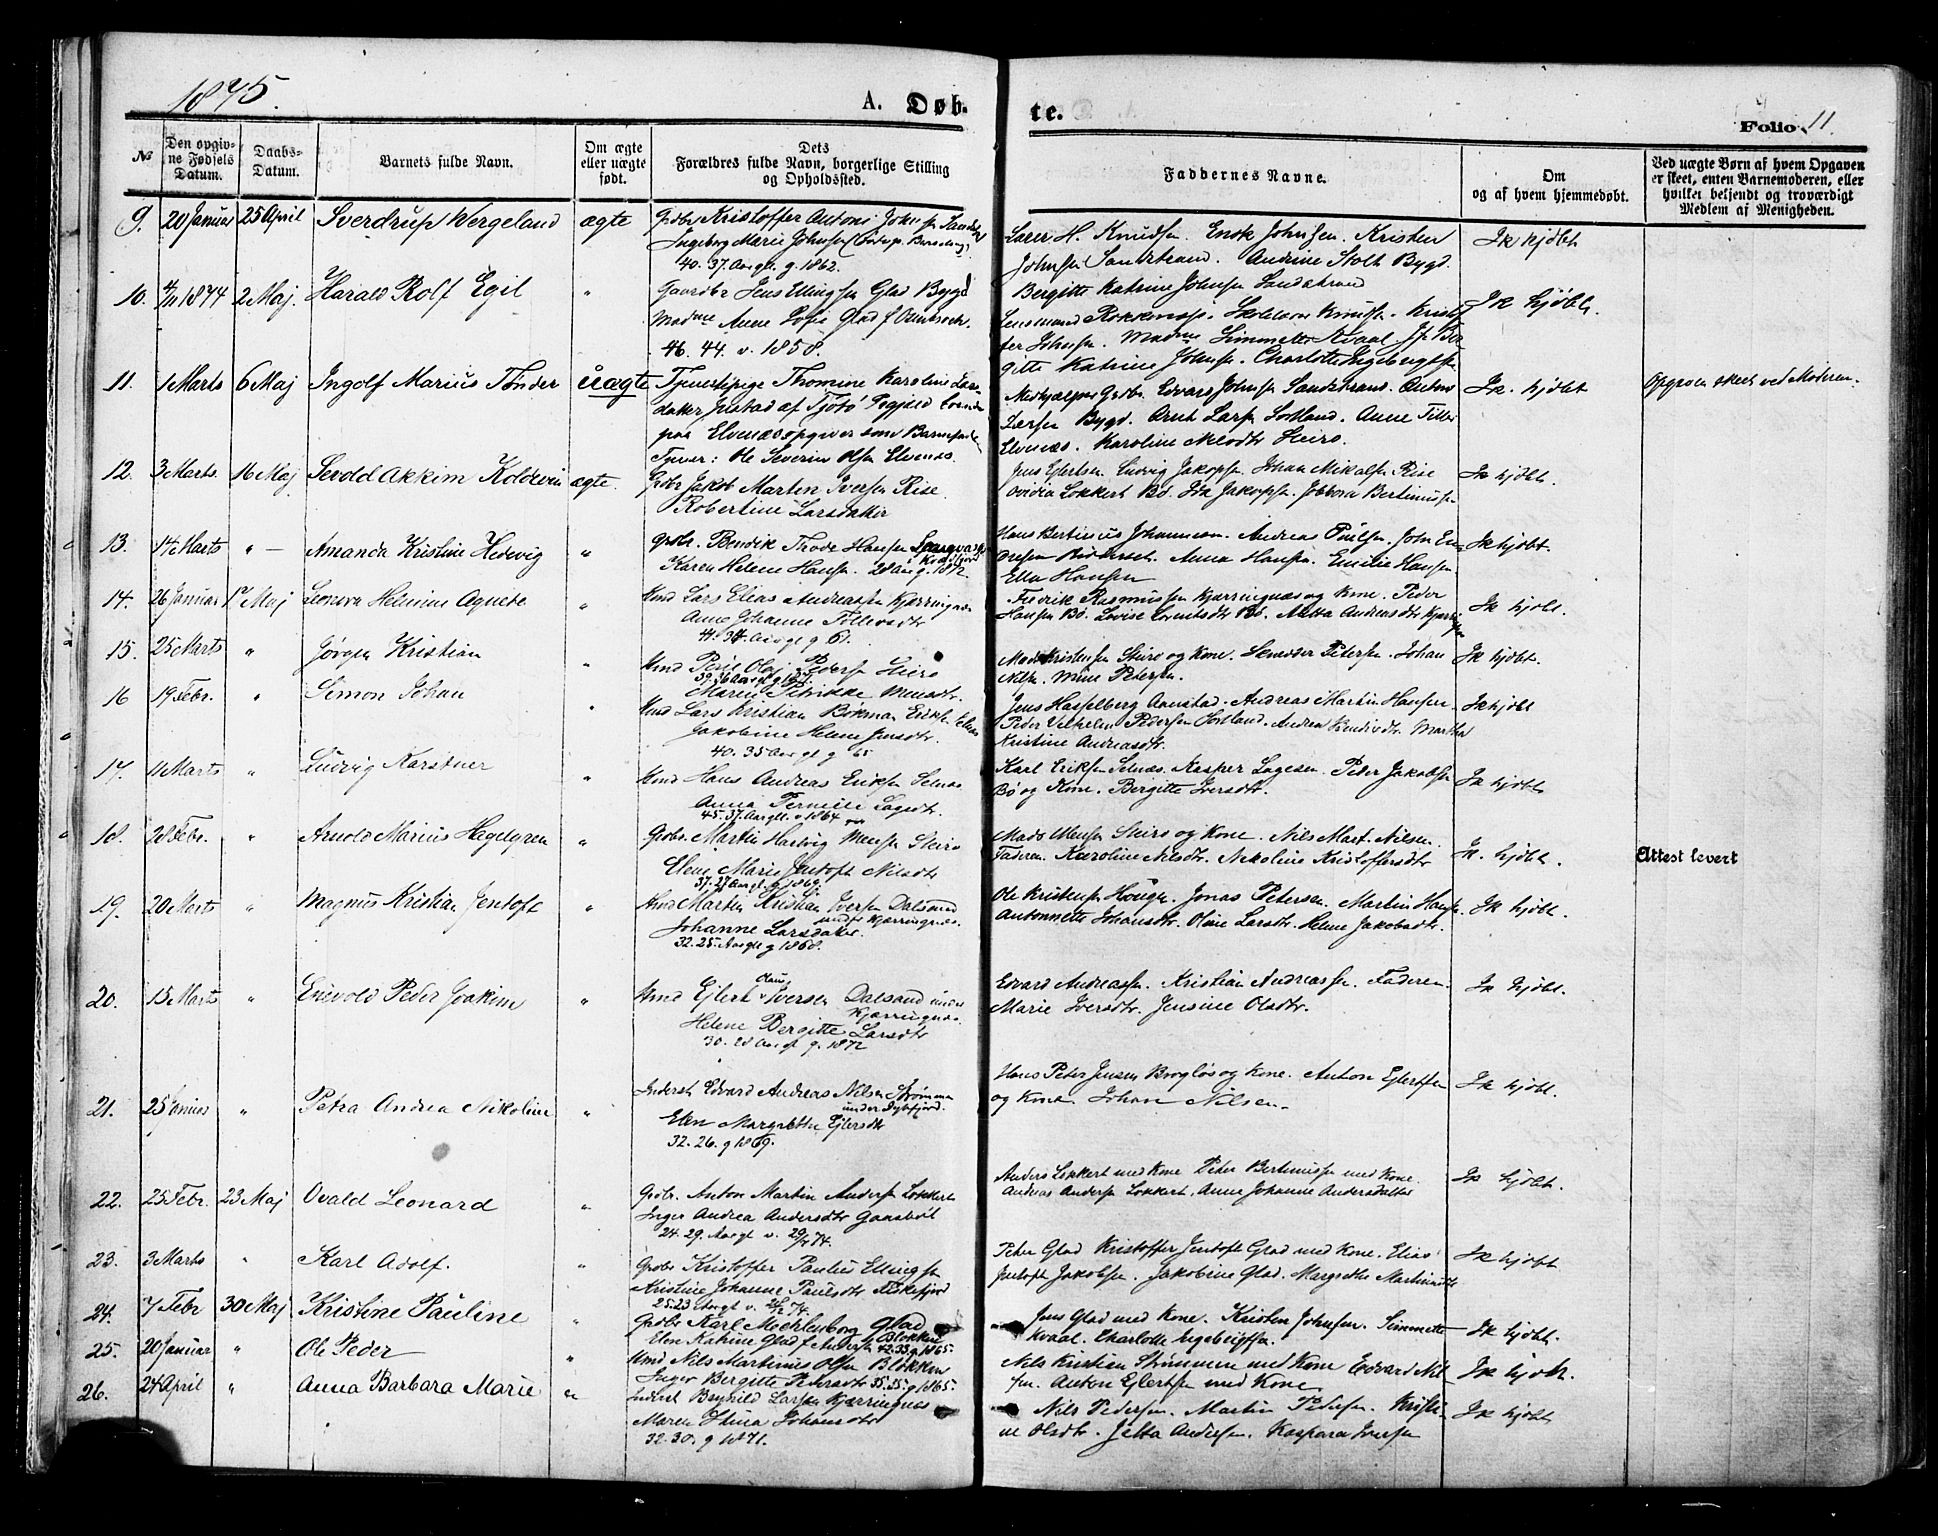 1875.
A. Døb-
te.
Folio 11.
№
Den opgivne Fødsels Datum.
Daabs-Datum.
Barnets fulde Navn.
Om ægte eller uægte født.
Dets Forældres fulde Navn, borgerlige Stilling og Opholdssted.
Faddernes Navne.
Om og af hvem hjemmedøbt.
Ved uægte Børn af hvem Opgaven er skeet, enten Barnemoderen, eller hvilket bekjendt og troværdigt Medlem af Menigheden.
9. 20 Januar 25 April Sverdrup Wergeland ægte Gdbr Kristoffer Antoni Johnsen
Ingeborg Marie Johnsen
40. 37. Aar gl. g. 1862.
Larer H. Knudsen. Enok Johnsen. Kristen
Johnsen Sandstrand. Andrine Stolt Bygd.
Bergitte Katrine Johnsen Sandstrand
Ik hjøbt
10. 4/11 1874 2 Maj. Harald Rolf Egil " Gaardbr Jens Ellingsen Glad Bygd
Madme Anne Sofie Glad f.
46. 44. v. 1858.
Lensmand Skolelærer Knudsen.
Johnsen. Madme Simmette Kvaal. Jf.
gitte Katrine Johnsen. Charlotte Ingebergtsen
Ik hjøbt.
11. 1 Marts 6 Maj Ingolf Marius Tønder uægte Tjenestepige Thomine Karoline Lars
datter af Tjøtø
paa Elvenæs opgiver som Barnefader
Tjener: Ole Severin Olsen Elvenæs
Gdbr. Edvard Johnsen Sandstrand. Anton
Larsen Bygd. Arnt Larsen Sortland. Anne
Elvenæs. Karoline Steiro.
Ik. hjøbt
Opgaven skeet ved Moderen.
12. 3 Marts. 16 Maj Sevold Akkim Koldevin ægte. Gdbr Jakob Marten Iversen Rise
Robertine Larsdatter
Jens Ejlertsen. Ludvig Jakopsen. Johan Mikalsen Rise
Lokkert Bø. Ida Jakopsen. Bertinussen
Ik hjøbt.
13. 14 Marts " Amanda Kristine Hedevig " Gdbr. Bendik Thode Hansen
Karen Helene Hansen. 28 Aar g. 1872.
Hans Bertinus Johannesen. Andreas Paulsen. John En-
dresen Anna Hansen. Emilie Hansen
Ella Hansen
Ik hjøbt.
14. 26 Januar 17 Maj Leonora Helmine Agnete " Kmd Lars Elias Andreassen Kjerringnæs
Anne Johanne Tollevsdtr
41. 34. Aar gl g 61.
Fredrik Rasmussen Kjerringnæs og Kone. Peder
Hansen Bø. Lovise Lorentsdtr Bø. Andreasdtr
Ik hjøbt.
15. 25 Marts " Jørgen Kristian " Kmd Peder Olaj Pedersen Steiro
Maren Petrikke Monsdtr.
Mads Kristensen Steiro og Kone. Petersen. Johan
Nilsen. Mine Petersen.
Ik hjøbt.
16 19 Febr. " Simon Johan " Kmd Lars Kristian Bøkman Eriksen Selnæs
Jakobine Helene Jensdtr.
40. 35 Aar gl g 65
Jens Hasselberg Aanstad. Andreas Martin Hansen.
Peder Vilhelm Pedersen Sortland. Andrea Bendixdtr. Martha
Kristine Andreasdtr.
Ik hjøbt
17. 11 Marts " Ludvig Karstner " Kmd Hans Andreas Eriksen Selnæs.
Anna Pernille Lagesdtr.
45. 37. Aar gl. v 1864
Karl Eriksen Selnæs. Kasper Lagesen. Peder Jakobsen
Bø og Kone. Bergitte Iversdtr.
Ik hjøbt.
18. 28 Febr. " Arnold Marius Hegelgren " Gdbr. Martin Hartvig Monsen Steiro
Elene Marie Jentoft Nilsdtr
37. 27 Aar gl. g 1869.
Mads Monsen Steiro og Kone. Nils Mart. Nilsen.
Faderen. Karoline Nilsdtr. Nikoline Kristoffersdtr
Ik. hjøbt.
Attest levert
19. 20 Marts " Magnus Kristian Jentoft " Kmd Martin Kristian Iversen Dalsand
under Kjerringnæs.
Johanne Larsdatter.
32. 25. Aar gl g 1868.
Ole Kristensen Hougen. Jonas Petersen. Martin Hansen.
Antonnette Johansdtr. Oline Larsdtr. Helene Jakobsdtr.
Ik hjøbt.
20. 15 Marts " Enevold Peder Joakim " Kmd Ejlert Olaus Iversen Dalsand under
Kjerringnæs.
Helene Bergitte Larsdtr
30. 28 Aar gl g. 1872
Edvard Andreassen. Kristian Andreassen. Faderen.
Marie Iversdtr. Jensine Olsdtr.
Ik hjøbt.
21. 25 Januar " Petra Andrea Nikoline " Inderst Edvard Andreas Nilsen Strømmen
under Dybfjord.
Elen Margrethe Ejlersdtr
32. 26. g 1869.
Hans Peter Jensen Brogløs og Kone. Anton Ejlertsen
og Kone. Johan Nilsen.
Ik hjøbt.
22. 25 Febr. 23 Maj Ovald Leonard " Gdbr. Anton Martin Andersen Lokkert
Inger Andrea Andersdtr
24. 29. Aar gl v. 29/4 74.
Anders Lokkert med Kone. Peter Bertinussen med Kone.
Andreas Andersen Lokkert. Anne Johanne Andersdatter
Ik hjøbt.
23. 3 Marts " Karl Adolf. " Gdbr Kristoffer Paulus Ellingsen
Kristine Johanne Paulsdtr Fiskefjord
25. 23 Aar gl v. 74.
Peter Glad Kristoffer Jentoft Glad med Kone. Elias
Jentoft Jakobsen. Jakobine Glad. Margrethe Martinusdtr
Ik hjøbt
24. 7 Febr 30 Maj Kristine Pauline " Gdbr Karl Mechlenborg Glad
Elen Katrine Glad f Andersen Blokken 42. 33. g. 1865.
Jens Glad med Kone. Kristen Johnsen. Simmette
Kvaal. Charlotte Ingebrigtsen.
Ik hjøbt.
25. 20 Januar " Ole Peder " Kmd. Nils Martinus Olsen Blokken
Inger Bergitte Pedersdtr 35. 35. g 1865.
Nils Kristian Strømmen med Kone Edvard Nil-
sen. Anton Ejlertsen med Kone
Ik hjøbt.
26. 24 April " Anna Barbara Marie " Inderst Brynild Larsen Kjerringnæs
Maren Olina Johansdtr
32. 30. g 1871.
Nils Pedersen. Martin Pedersen. Kristi-
ne Olsdtr. Jetta Andersen. Kaspara Iversen
Ik hjøbt